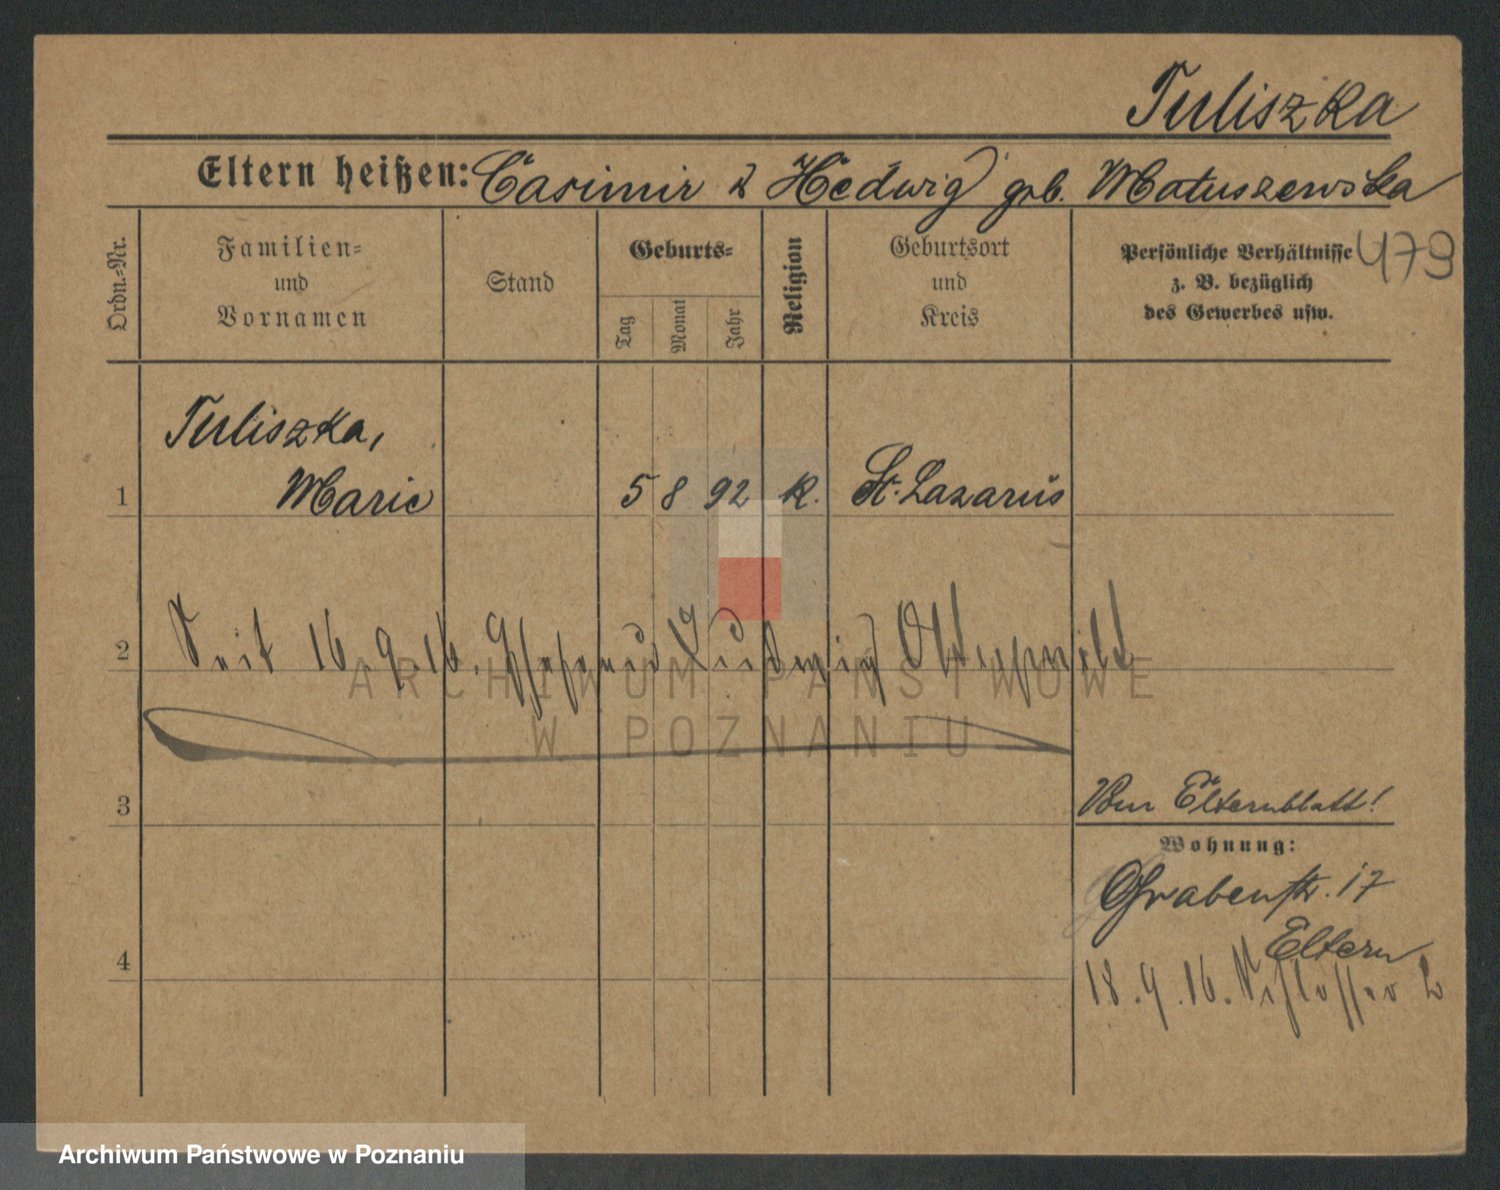 Tuliszka
Eltern heißen: Casimir & Hedwig geb. Matuszewska
Ordn.-Nr.
Familien-
und
Vornamen
Stand
Geburts-
Tag
Monat
Jahr
Religion
Geburtsort
und
Kreis
Persönliche Verhältnisse
z. B. bezüglich
des Gewerbes usw.
479
Tuliszka,
1 Marie 5 8 92 K. St. Lazarus
2 Seit 16.9.16. Ehefrau Ludwig
ARCHIWUM PAŃSTWOWE
W POZNANIU
3 Elternblatt!
Wohnung:
Grabenstr. 17
Eltern
4
18.9.16.
Archiwum Państwowe w Poznaniu